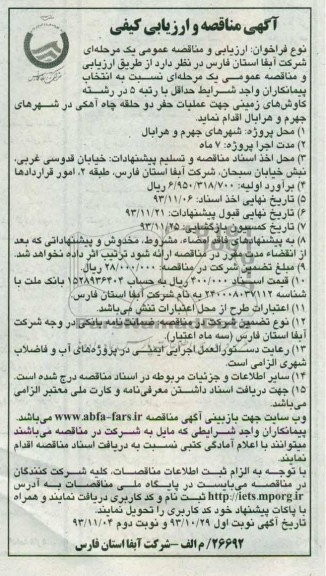 آگهی مناقصه و ارزیابی کیفی
نوع فراخوان: ارزیابی و مناقصه عمومی یک مرحله‌ای
شرکت آبفا استان فارس در نظر دارد از طریق ارزیابی
و مناقصه عمومی یک مرحله‌ای نسبت به انتخاب
پیمانکاران واجد شرایط حداقل با رتبه ۵ در رشته
کاوش‌های زمینی جهت عملیات حفر دو حلقه چاه آهکی در شهرهای
جهرم و هرابال اقدام نماید.
۱) محل پروژه: شهرهای جهرم و هرابال
۲) مدت اجرا پروژه: ۷ ماه
۳) محل اخذ اسناد مناقصه و تسلیم پیشنهادات: خیابان قدوسی غربی،
نبش خیابان سبحان، شرکت آبفا استان فارس، طبقه ۲، امور قراردادها
۴) برآورد اولیه: ۶/۹۵۰/۳۱۸/۷۰۰ ریال
۵) تاریخ نهایی اخذ اسناد: ۹۳/۱۱/۰۶
۶) تاریخ نهایی قبول پیشنهادات: ۹۳/۱۱/۲۱
۷) تاریخ کمیسیون بازگشایی: ۹۳/۱۱/۲۵
۸) به پیشنهادهای فاقد امضاء، مشروط، مخدوش و پیشنهاداتی که بعد
از انقضاء مدت مقرر در مناقصه ارائه شود ترتیب اثر داده نخواهد شد.
۹) مبلغ تضمین شرکت در مناقصه: ۲۸/۰۰۰/۰۰۰ ریال
۱۰) قیمت اسناد ۴۰۰/۰۰۰ ریال به حساب ۱۵۲۸۹۳۶۴۰۴ بانک ملت با
شناسه ۲۴۰۰۰۸۰۳۷۱۱۲ به نام شرکت آبفا استان فارس.
۱۱) اعتبارات طرح از محل اعتبارات تنش می‌باشد.
۱۲) نوع تضمین شرکت در مناقصه: ضمانت‌نامه بانکی در وجه شرکت
آبفا استان فارس (سه ماه اعتبار)
۱۳) رعایت دستورالعمل اجرایی ایمنی در پروژه‌های آب و فاضلاب
شهری الزامی است.
۱۴) سایر اطلاعات و جزئیات مربوطه در اسناد مناقصه درج شده است.
۱۵) جهت دریافت اسناد داشتن معرفی‌نامه و کارت ملی معتبر الزامی
می‌باشد.
وب سایت جهت بازبینی آگهی مناقصه www.abfa-fars.ir می‌باشد.
پیمانکاران واجد شرایطی که مایل به شرکت در مناقصه می‌باشند
میتوانند با اعلام آمادگی کتبی نسبت به دریافت اسناد مناقصه اقدام
نمایند
با توجه به الزام ثبت اطلاعات مناقصات، کلیه شرکت کنندگان
در مناقصه می‌بایست در پایگاه ملی مناقصات به آدرس
http://iets.mporg.ir ثبت نام و کد کاربری دریافت نمایند و همراه
با پاکات پیشنهاد خود کد کاربری را تحویل نمایند.
تاریخ آگهی نوبت اول ۹۳/۱۰/۲۹ و نوبت دوم ۹۳/۱۱/۰۴
۲۶۶۹۲/م الف - شرکت آبفا استان فارس